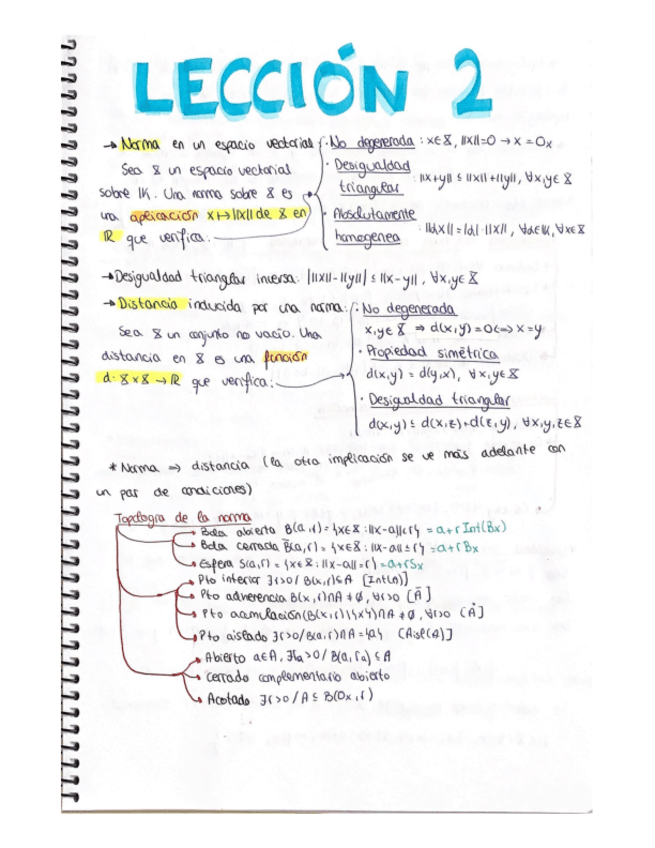 LECCIÓN 2
→ Norma en un espacio vectorial
Sea X un espacio vectorial
sobre IK. Una norma sobre X es
una aplicación x↦||x|| de X en
ℝ que verifica:
· No degenerada : x∈X, ||x||=0 → x = 0x
· Desigualdad
triangular : ||x+y|| ≤ ||x||+||y||, ∀x,y∈X
· Absolutamente
homogenea : ||αx||=|α|·||x||, ∀α∈IK, ∀x∈X
→ Desigualdad triangular inversa: |||x||-||y||| ≤ ||x-y||, ∀x,y∈X
→ Distancia inducida por una norma:
Sea X un conjunto no vacío. Una
distancia en X es una función
d: X×X → ℝ que verifica:
· No degenerada
x,y∈X ⇒ d(x,y)=0⇐⇒x=y
· Propiedad simétrica
d(x,y) = d(y,x), ∀x,y∈X
· Desigualdad triangular
d(x,y) ≤ d(x,z)+d(z,y), ∀x,y,z∈X
* Norma ⇒ distancia (la otra implicación se ve más adelante con
un par de condiciones)
Topología de la norma
Bola abierta B(a,r)={x∈X:||x-a||<r} = a+r Int(Bx)
Bola cerrada B̄(a,r)={x∈X:||x-a||≤r} = a+r Bx
Esfera S(a,r)={x∈X:||x-a||=r} = a+rSx
Pto interior ∃r>0/ B(x,r)⊆A [Int(A)]
Pto adherencia B(x,r)∩A ≠ ∅, ∀r>0 [Ā]
Pto acumulación (B(x,r)\{x})∩A ≠ ∅, ∀r>0 [A']
Pto aislado ∃r>0/B(a,r)∩A={a} [Aisl(A)]
Abierto a∈A, ∃ra>0/ B(a,ra)⊆A
Cerrado complementario abierto
Acotado ∃r>0/ A⊆ B(0x,r)